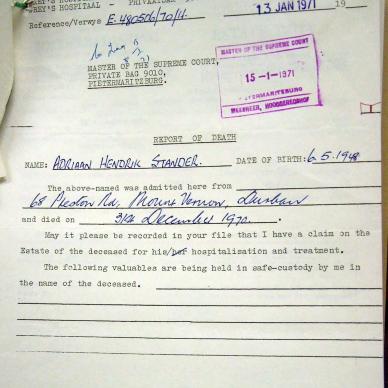 REY'S HOSPITAAL - PRIVAATSAK
13 JAN 1971 19
Reference/Verwys E.480506/70/11.
MASTER OF THE SUPREME COURT
15-1-1971
PIETERMARITZBURG
MEESTER, HOOGGEREGSHOF
MASTER OF THE SUPREME COURT,
PRIVATE BAG 9010,
PIETERMARITZBURG.
REPORT OF DEATH
NAME: ADRIAAN HENDRIK STANDER. DATE OF BIRTH: 6.5.1948
The above-named was admitted here from
68 Rd, Mount Vernon, Durban
and died on 31st December 1970.
May it please be recorded in your file that I have a claim on the
Estate of the deceased for his/her hospitalisation and treatment.
The following valuables are being held in safe-custody by me in
the name of the deceased.